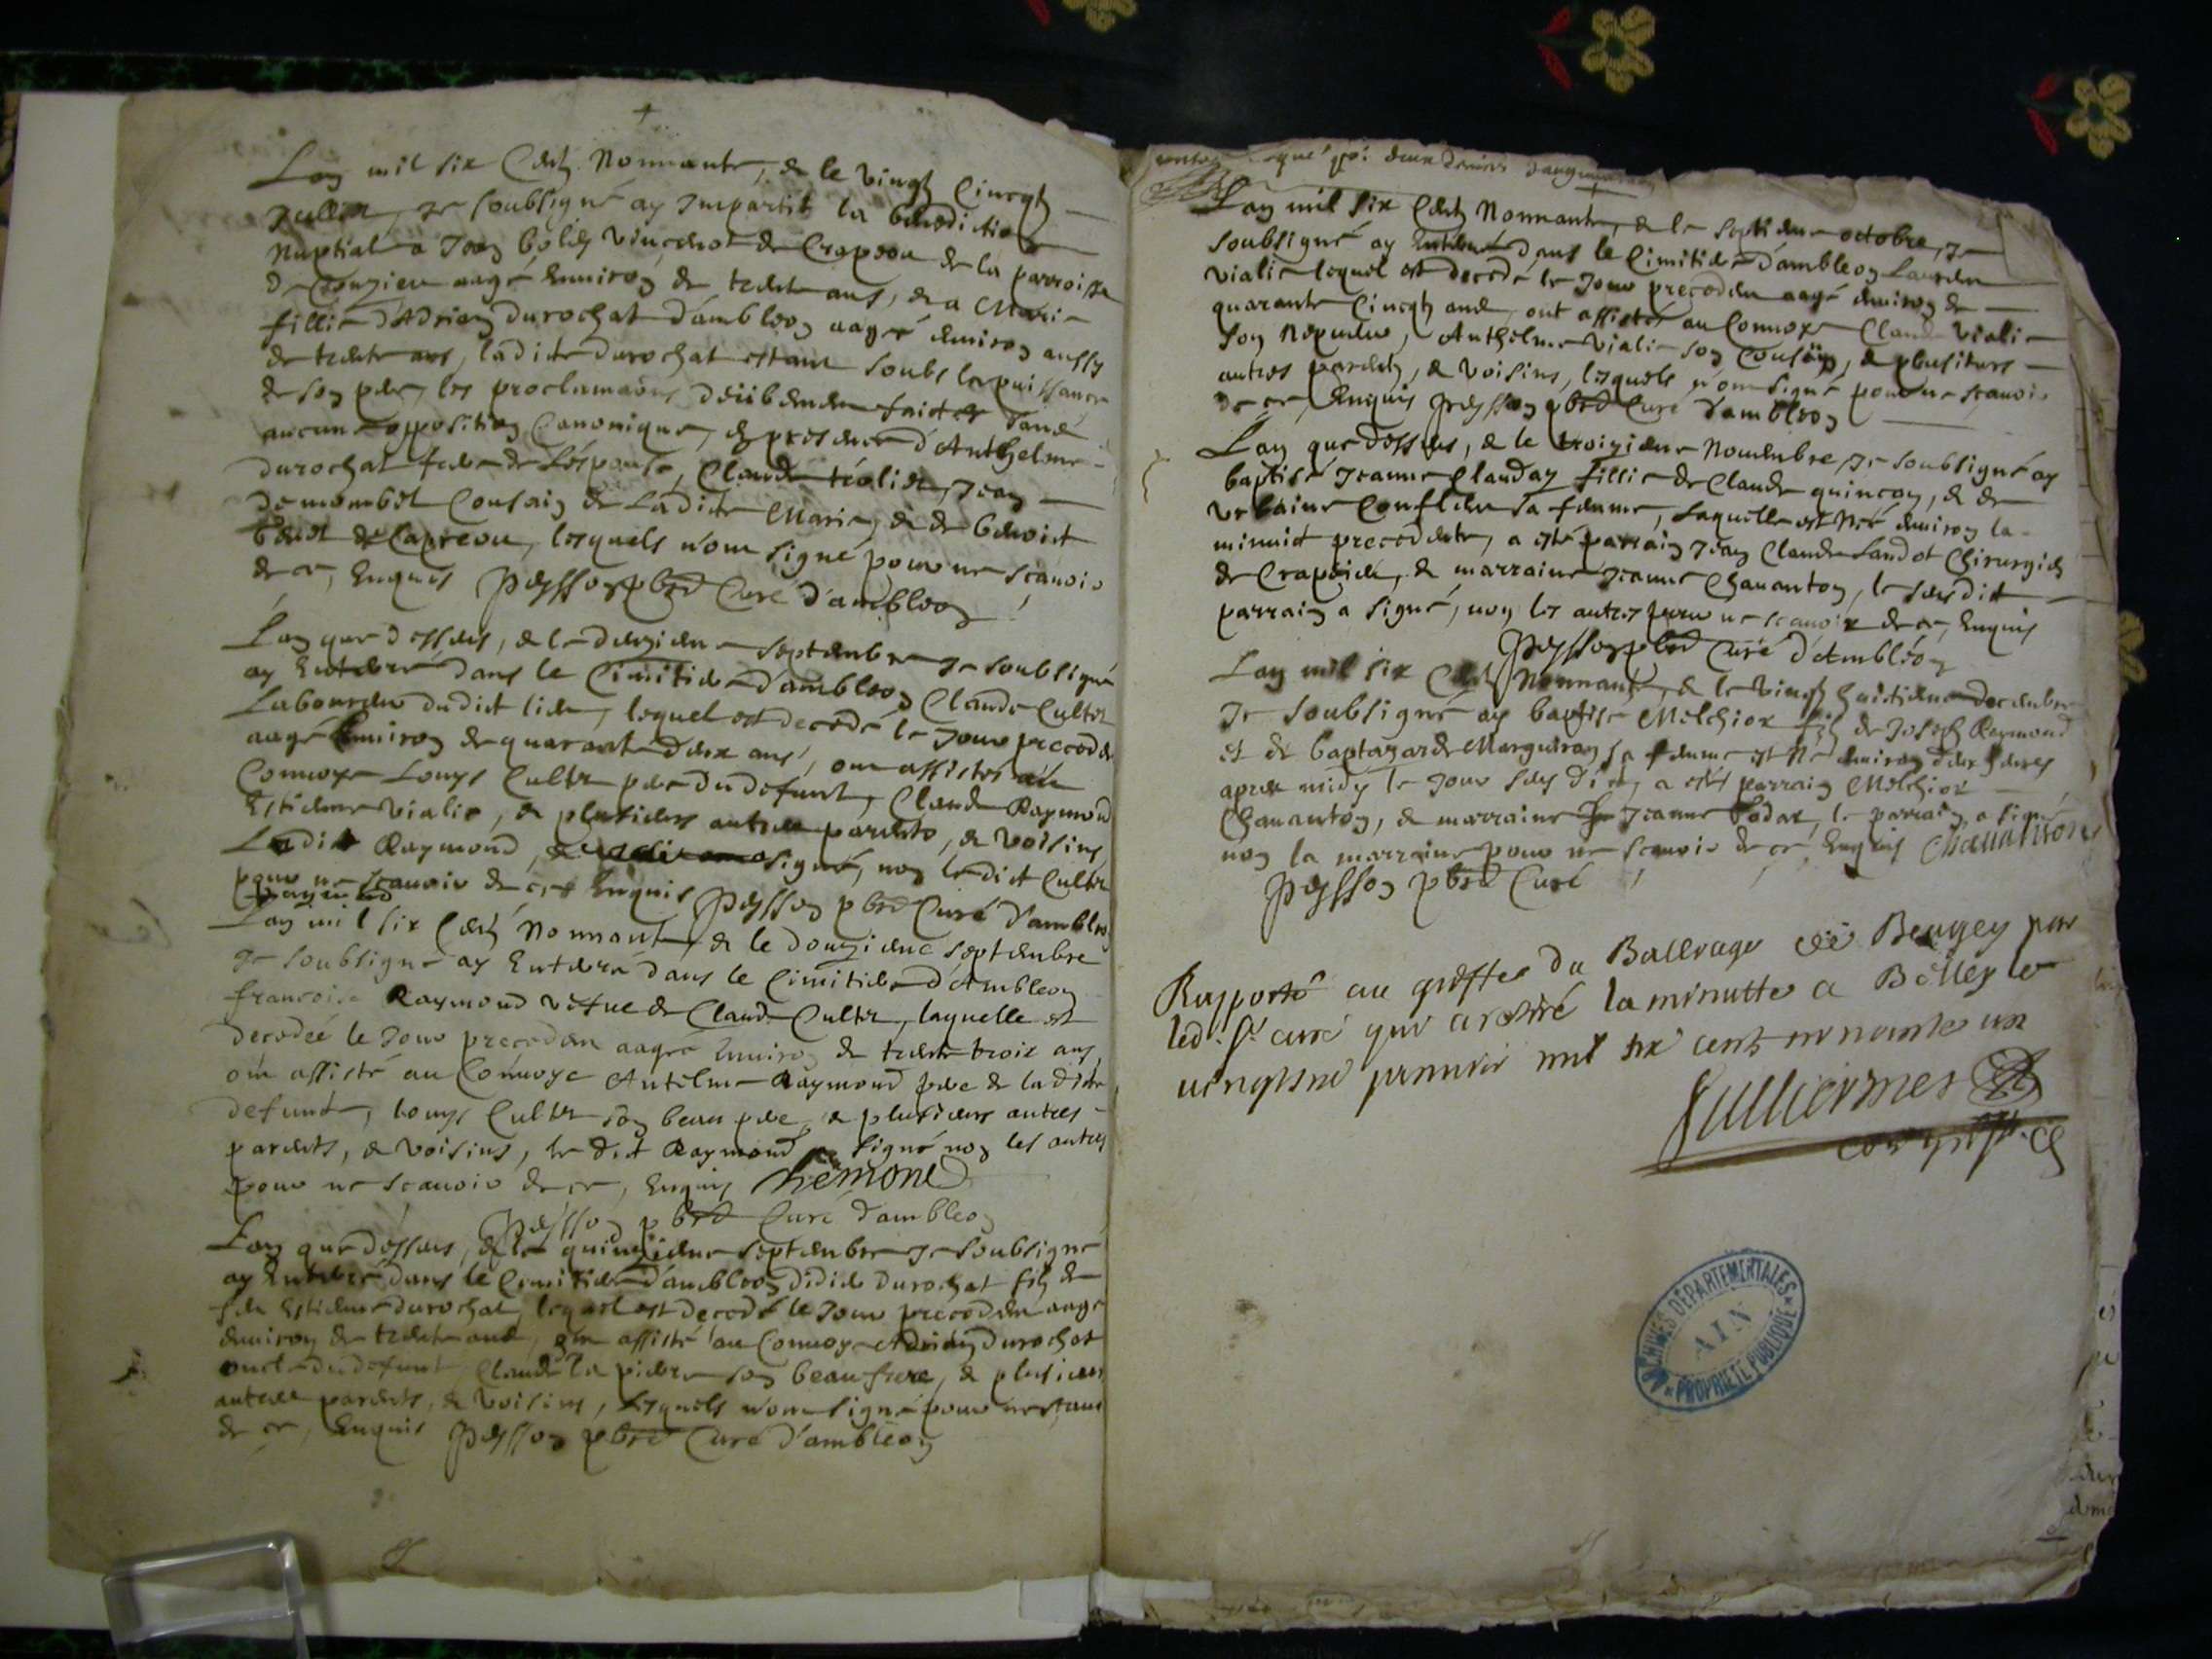 Lan mil six Cents Nonnante, & le vingt Cincqz
Juillet, Je soubsigné ay Impartit la benediction
Nuptial a Jean de Crapeou de la parroisse
de Conzieu aagé Environ de trente ans, & a Marie
fillie d'Adrian Durochat d'ambleon aagée Environ aussy
de trente ans, ladicte Durochat estant soubs la puissance
de son pere, les proclamaons deübement faictes sans
aucune opposition Canonique, en presence d'Anthelme
Durochat frere de L'espouse, Claude Jean
Demombet Cousain de Ladicte Marie, & de benoict
de Capreou, lesquels n'ont signé pour ne scavoir
de ce, Enquis Peysson pbre Curé d'ambleon
Lan que dessus, & le septembre Je soubsigné
ay Enterré dans le Cimitiere d'ambleon Claude Culter
Laboureur dudict lieu, lequel est decedé le Jour preceden
aagé Environ de quarante deux ans, ont assistés au
Convoye Louys Culter pere du defunt, Claude Raymond
Estienne Vialie, & plusieurs autres parents, & voisins
Ledict Raymond, signé, non ledict Culter
pour ne scavoir de ce Enquis Peysson pbre Curé d'ambleo
Raymond
Lan mil six Cents Nonnante, & le douzieme septembre
Je soubsigné ay Enterré dans le Cimitiere d'Ambleon
francoise Raymond vefue de Claude Culter, laquelle est
decedée le Jour preceden aagée Environ de trente trois ans,
ont assisté au Convoye Antelme Raymond pere de la dicte
defunte, Louys Culter son beau pere, & plusieurs autres
parents, & voisins, le dict Raymond a signé non les autres
pour ne scavoir de ce, Enquis Remond
Peysson pbre Curé d'ambleon
Lan que dessus, & le quinzieme septembre Je soubsigné
ay Enterré dans le Cimitiere d'ambleon Didier Durochat filz de
feu Estienne Durochat, lequel est decedé le Jour preceden aagé
Environ de trente ans, ont assisté au Convoye Adrian Durochat
oncle du defunt, Claude la pierre son beau frere, & plusieurs
autres parents, & voisins, Lesquels n'ont signé pour ne scavoi
de ce, Enquis Peysson pbre Curé d'ambleon
deux deniers d'augmentaon
Lan mil six Cents Nonnante, & le septieme octobre, Je
soubsigné ay Enterré dans le Cimitiere d'ambleon Lauren
Vialie lequel est decedé le Jour preceden aagé Environ de
quarante Cincqz ans, ont assistés au Convoye Claude Vialie
son Nepveu, Anthelme Vialie son Cousain, & plusieurs
autres parents, & voisins, lesquels n'ont signé pour ne scavoir
de ce, Enquis Peysson pbre Curé d'ambleon
Lan que dessus, & le troizieme Novembre, Je soubsigné ay
baptisé Jeanne Clauday fillie de Claude quincon, & de
sa femme, Laquelle est Née Environ la
minuict precedente, a esté parrain Jean Claude Landot Chirurgien
de & marraine Jeanne Chavanton, le susdict
parrain a signé, non les autres pour ne scavoir de ce, Enquis
Peysson pbre Curé d'Ambléon
Lan mil six Cents Nonnante, & le vingt huictieme decembre
Je soubsigné ay baptisé Melchior filz de Joseph Raymond
et de baptazarde Marguiron sa femme est Né Environ deux heures
apres midy le Jour sus dict, a esté parrain Melchior
Chavanton, & marraine Jeanne le parrain a signé
non la marraine pour ne scavoir de ce, Enquis Chauanton
Peysson pbre Curé
Rapporté au greffe du Bailliage de Beugey par
led. Sr curé qui a retiré la minutte a Belley le
vingt janvier mil six cents nonante un
Julliermes
ARCHIVES DÉPARTEMENTALES
AIN
PROPRIÉTÉ PUBLIQUE